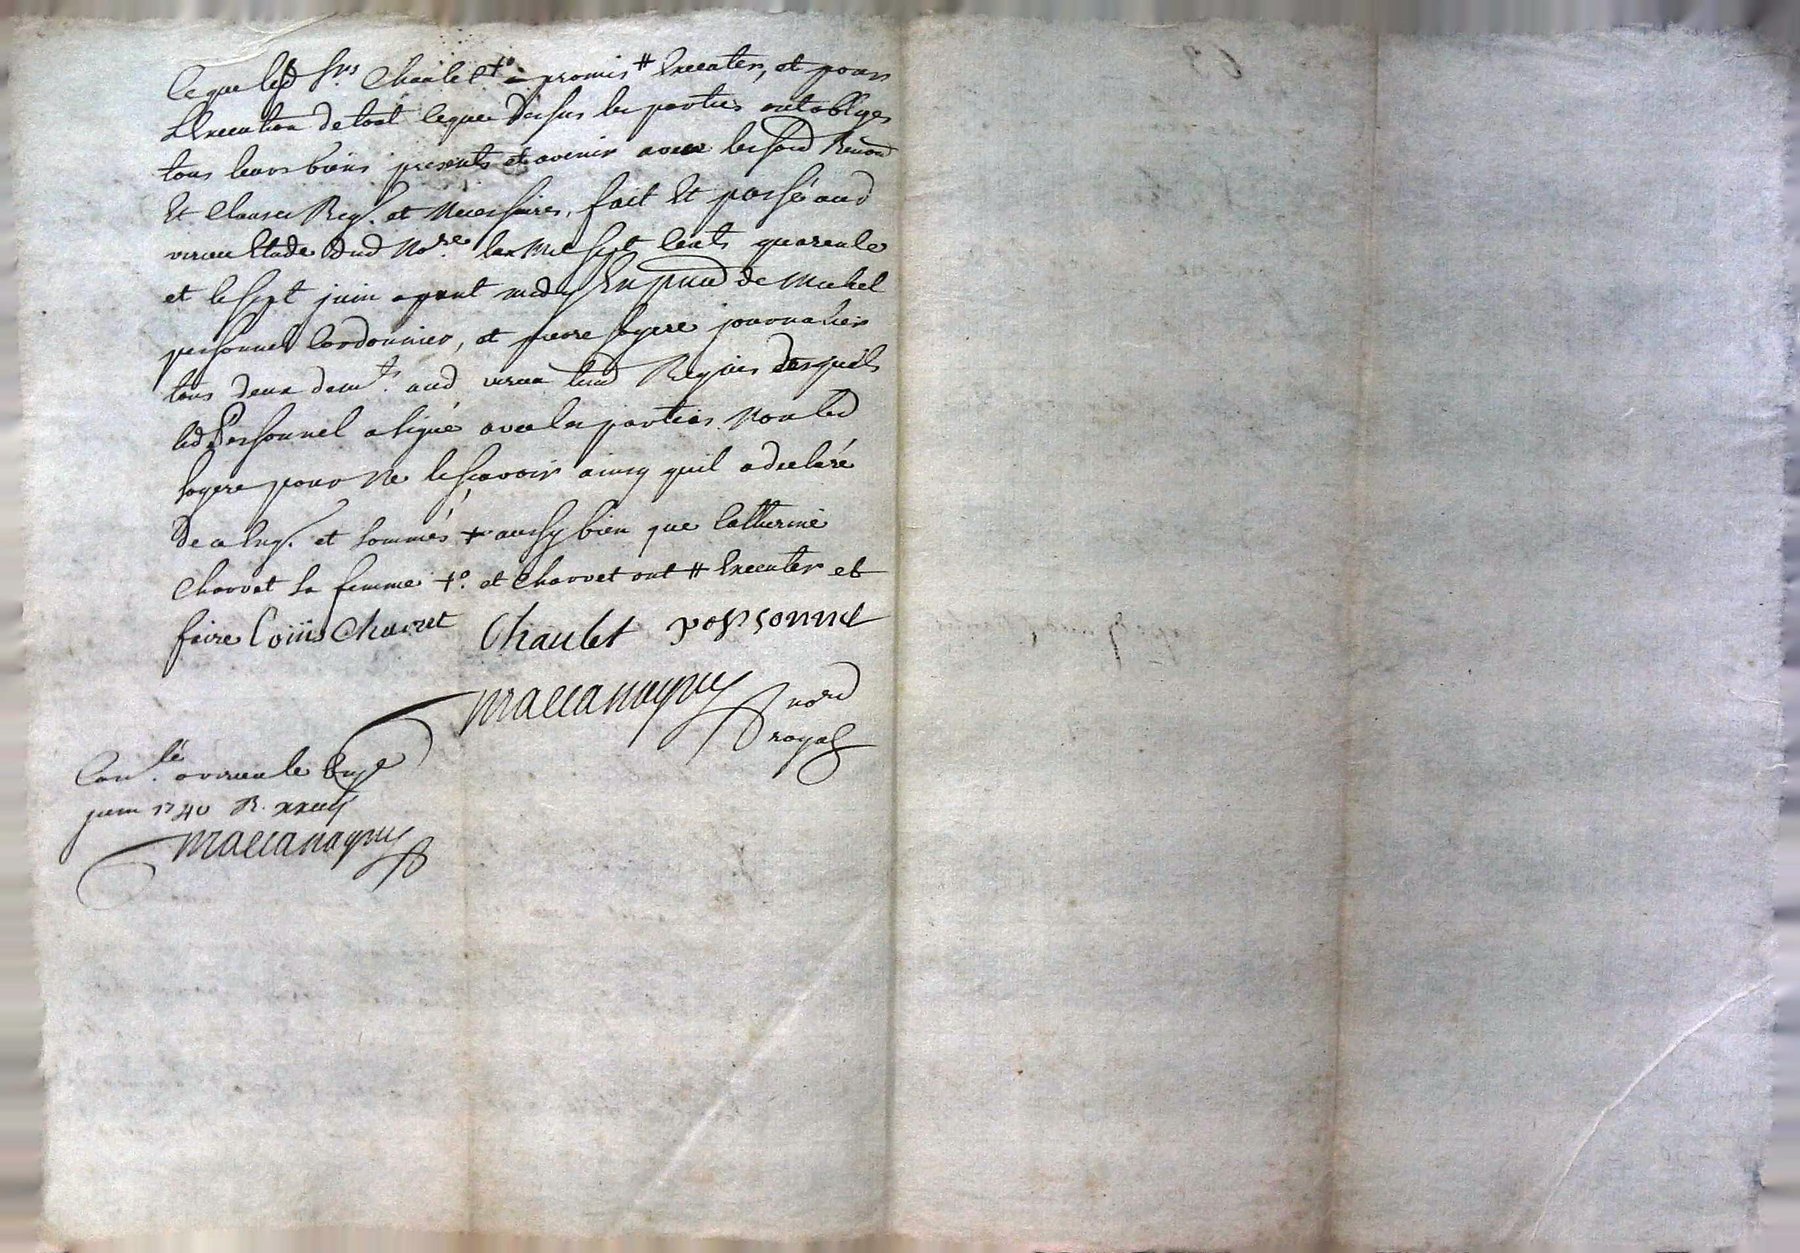 Ceque led Srs Chaulet +° a promis # Executer, et pour
L'Execution de tout ceque dessus les parties ont obliges
tous leurs biens presents et avenir avec les soud Renon
Et Clauses Req. et Necessaires, fait Et passé aud
virieu Etude dud No.re lan Mil sept Cents quarente
et le sept juin avant midy En pnce de Michel
personnel Cordonnier, et pierre sogere journalier
tous deux dem.ts aud virieu temd Requis desquels
led Personnel a signé avec les parties Non led
sogere pour Ne le scavoir ainsy quil a declaré
De ce Enq. et sommés + aussy bien que Catherine
Charvet sa femme +° et Charvet ont # Executer et
faire Charvet Chaulet personnel
Maccanagny nord
royal
Con.lé a virieu le
juin 1740 R.
Maccanagny
63